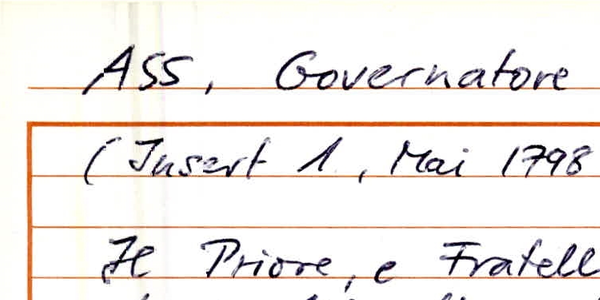 ASS, Governatore
(Insert 1, Mai 1798
Il Priore, e Fratell